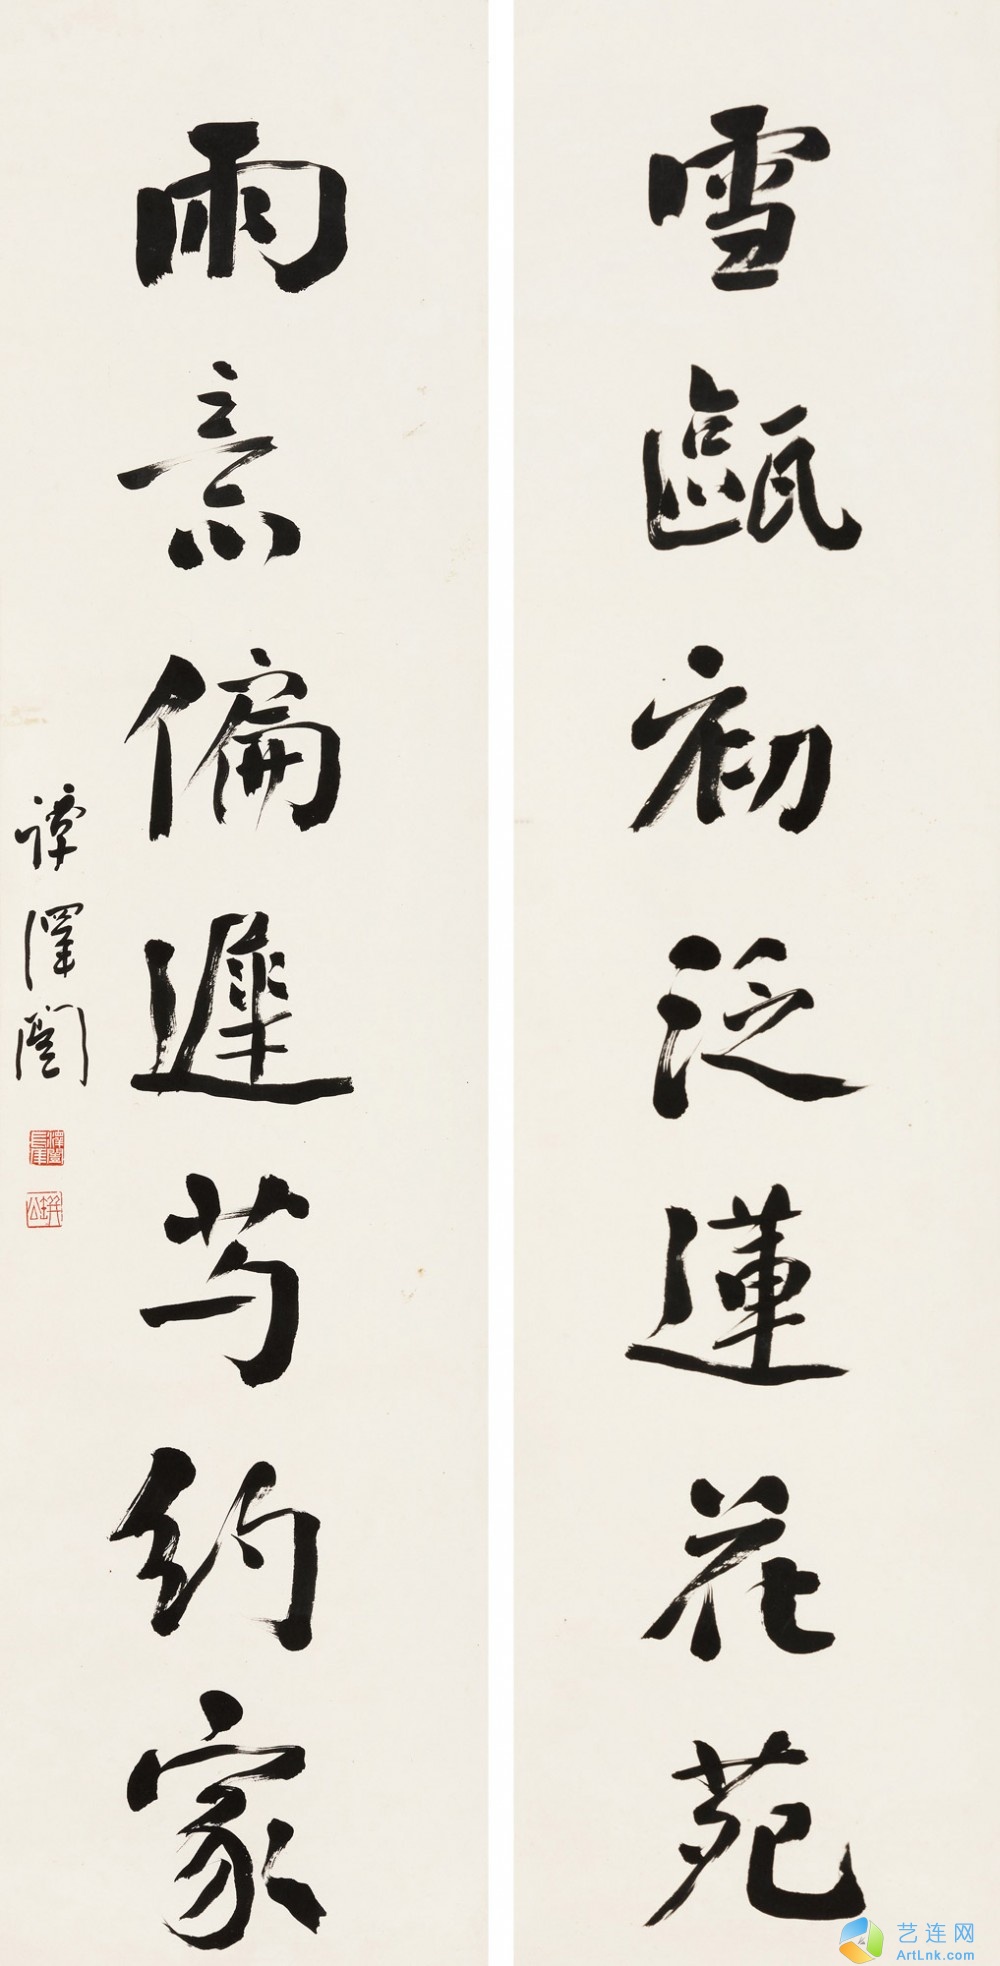 雪甌初泛蓮花苑
雨意偏遲芍約家
譚澤闓
艺连网
ArtLnk.com